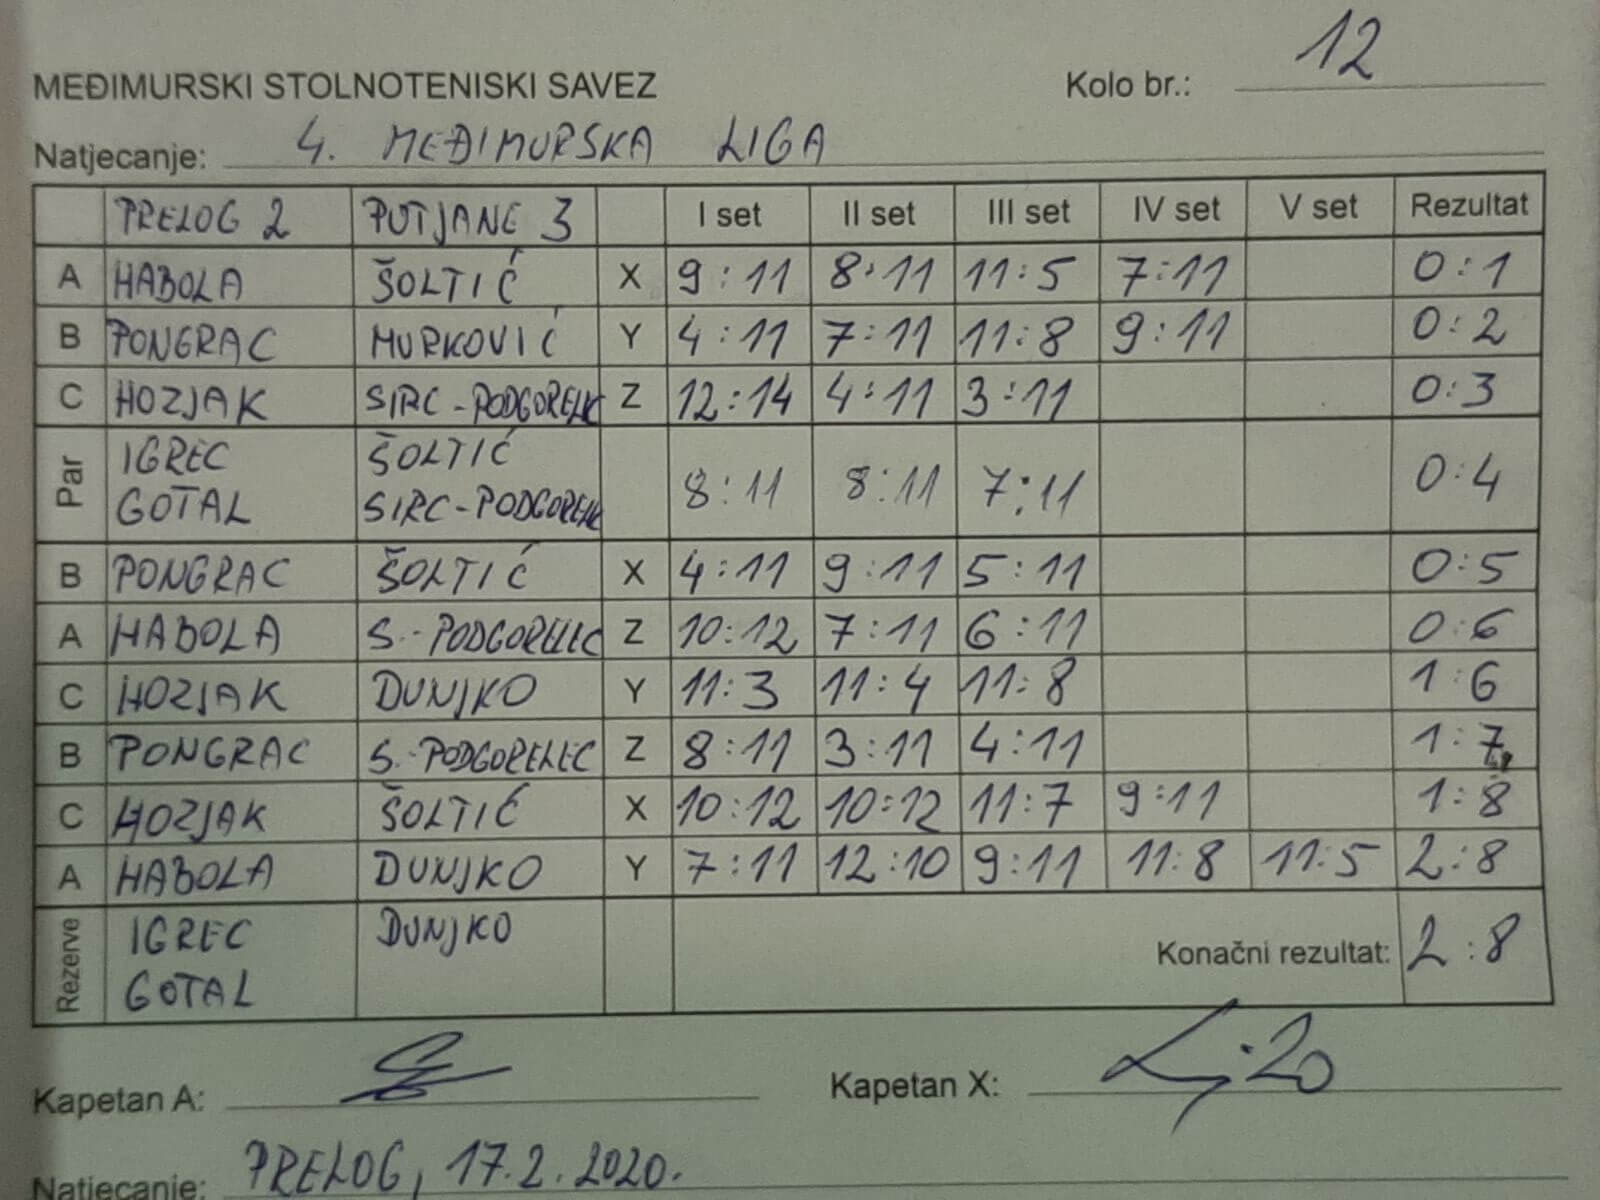 MEĐIMURSKI STOLNOTENISKI SAVEZ Kolo br.: 12
Natjecanje: 4. MEĐIMURSKA LIGA
PRELOG 2 PUTJANE 3 I set II set III set IV set V set Rezultat
A HABOLA ŠOLTIĆ X 9:11 8:11 11:5 7:11 0:1
B PONGRAC MURKOVIĆ Y 4:11 7:11 11:8 9:11 0:2
C HOZJAK SIRC-PODGORELEC Z 12:14 4:11 3:11 0:3
Par IGREC ŠOLTIĆ 8:11 8:11 7:11 0:4
GOTAL SIRC-PODGORELEC
B PONGRAC ŠOLTIĆ X 4:11 9:11 5:11 0:5
A HABOLA S.-PODGORELEC Z 10:12 7:11 6:11 0:6
C HOZJAK DUNJKO Y 11:3 11:4 11:8 1:6
B PONGRAC S.-PODGORELEC Z 8:11 3:11 4:11 1:7
C HOZJAK ŠOLTIĆ X 10:12 10:12 11:7 9:11 1:8
A HABOLA DUNJKO Y 7:11 12:10 9:11 11:8 11:5 2:8
Rezerve IGREC DUNJKO Konačni rezultat: 2:8
GOTAL
Kapetan A: Kapetan X:
Natjecanje: PRELOG, 17.2.2020.